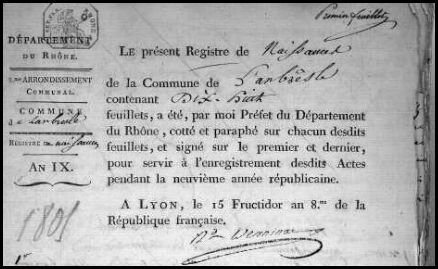 Premier feuillet
DÉPARTEMENT
DU RHÔNE.
ARRONDISSEMENT
COMMUNAL.
COMMUNE
d Larbresle
REGISTRE de naissances
AN IX.
1801
LE présent Registre de Naissances
de la Commune de Larbresle
contenant Dix-huit
feuillets, a été, par moi Préfet du Département
du Rhône, cotté et paraphé sur chacun desdits
feuillets, et signé sur le premier et dernier,
pour servir à l'enregistrement desdits Actes
pendant la neuvième année républicaine.
A LYON, le 15 Fructidor an 8.me de la
République française.